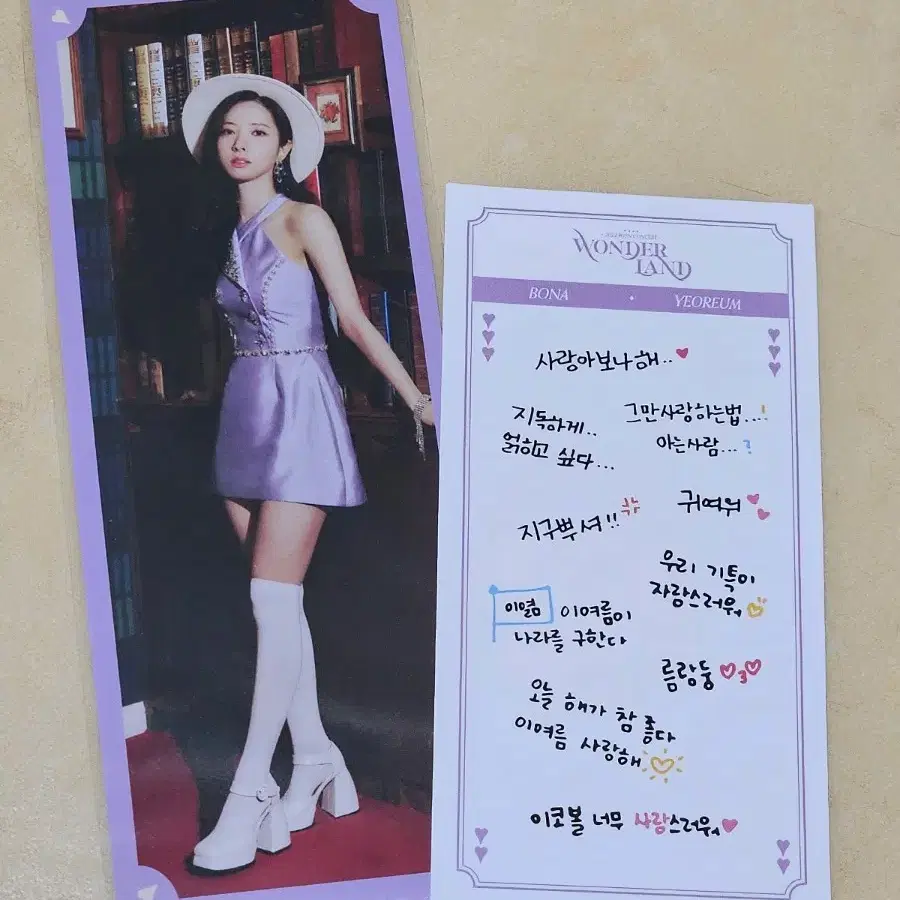 WONDER
LAND
BONA • YEOREUM
사랑아보나해..
지독하게..
얽히고 싶다...
그만사랑하는법...!
아는사람...?
귀여워
지구뿌셔!!
우리 기특이
자랑스러워
이열 이여름이
나라를 구한다
름랑둥
오늘 해가 참 좋다
이여름 사랑해
이코볼 너무 사랑스러워